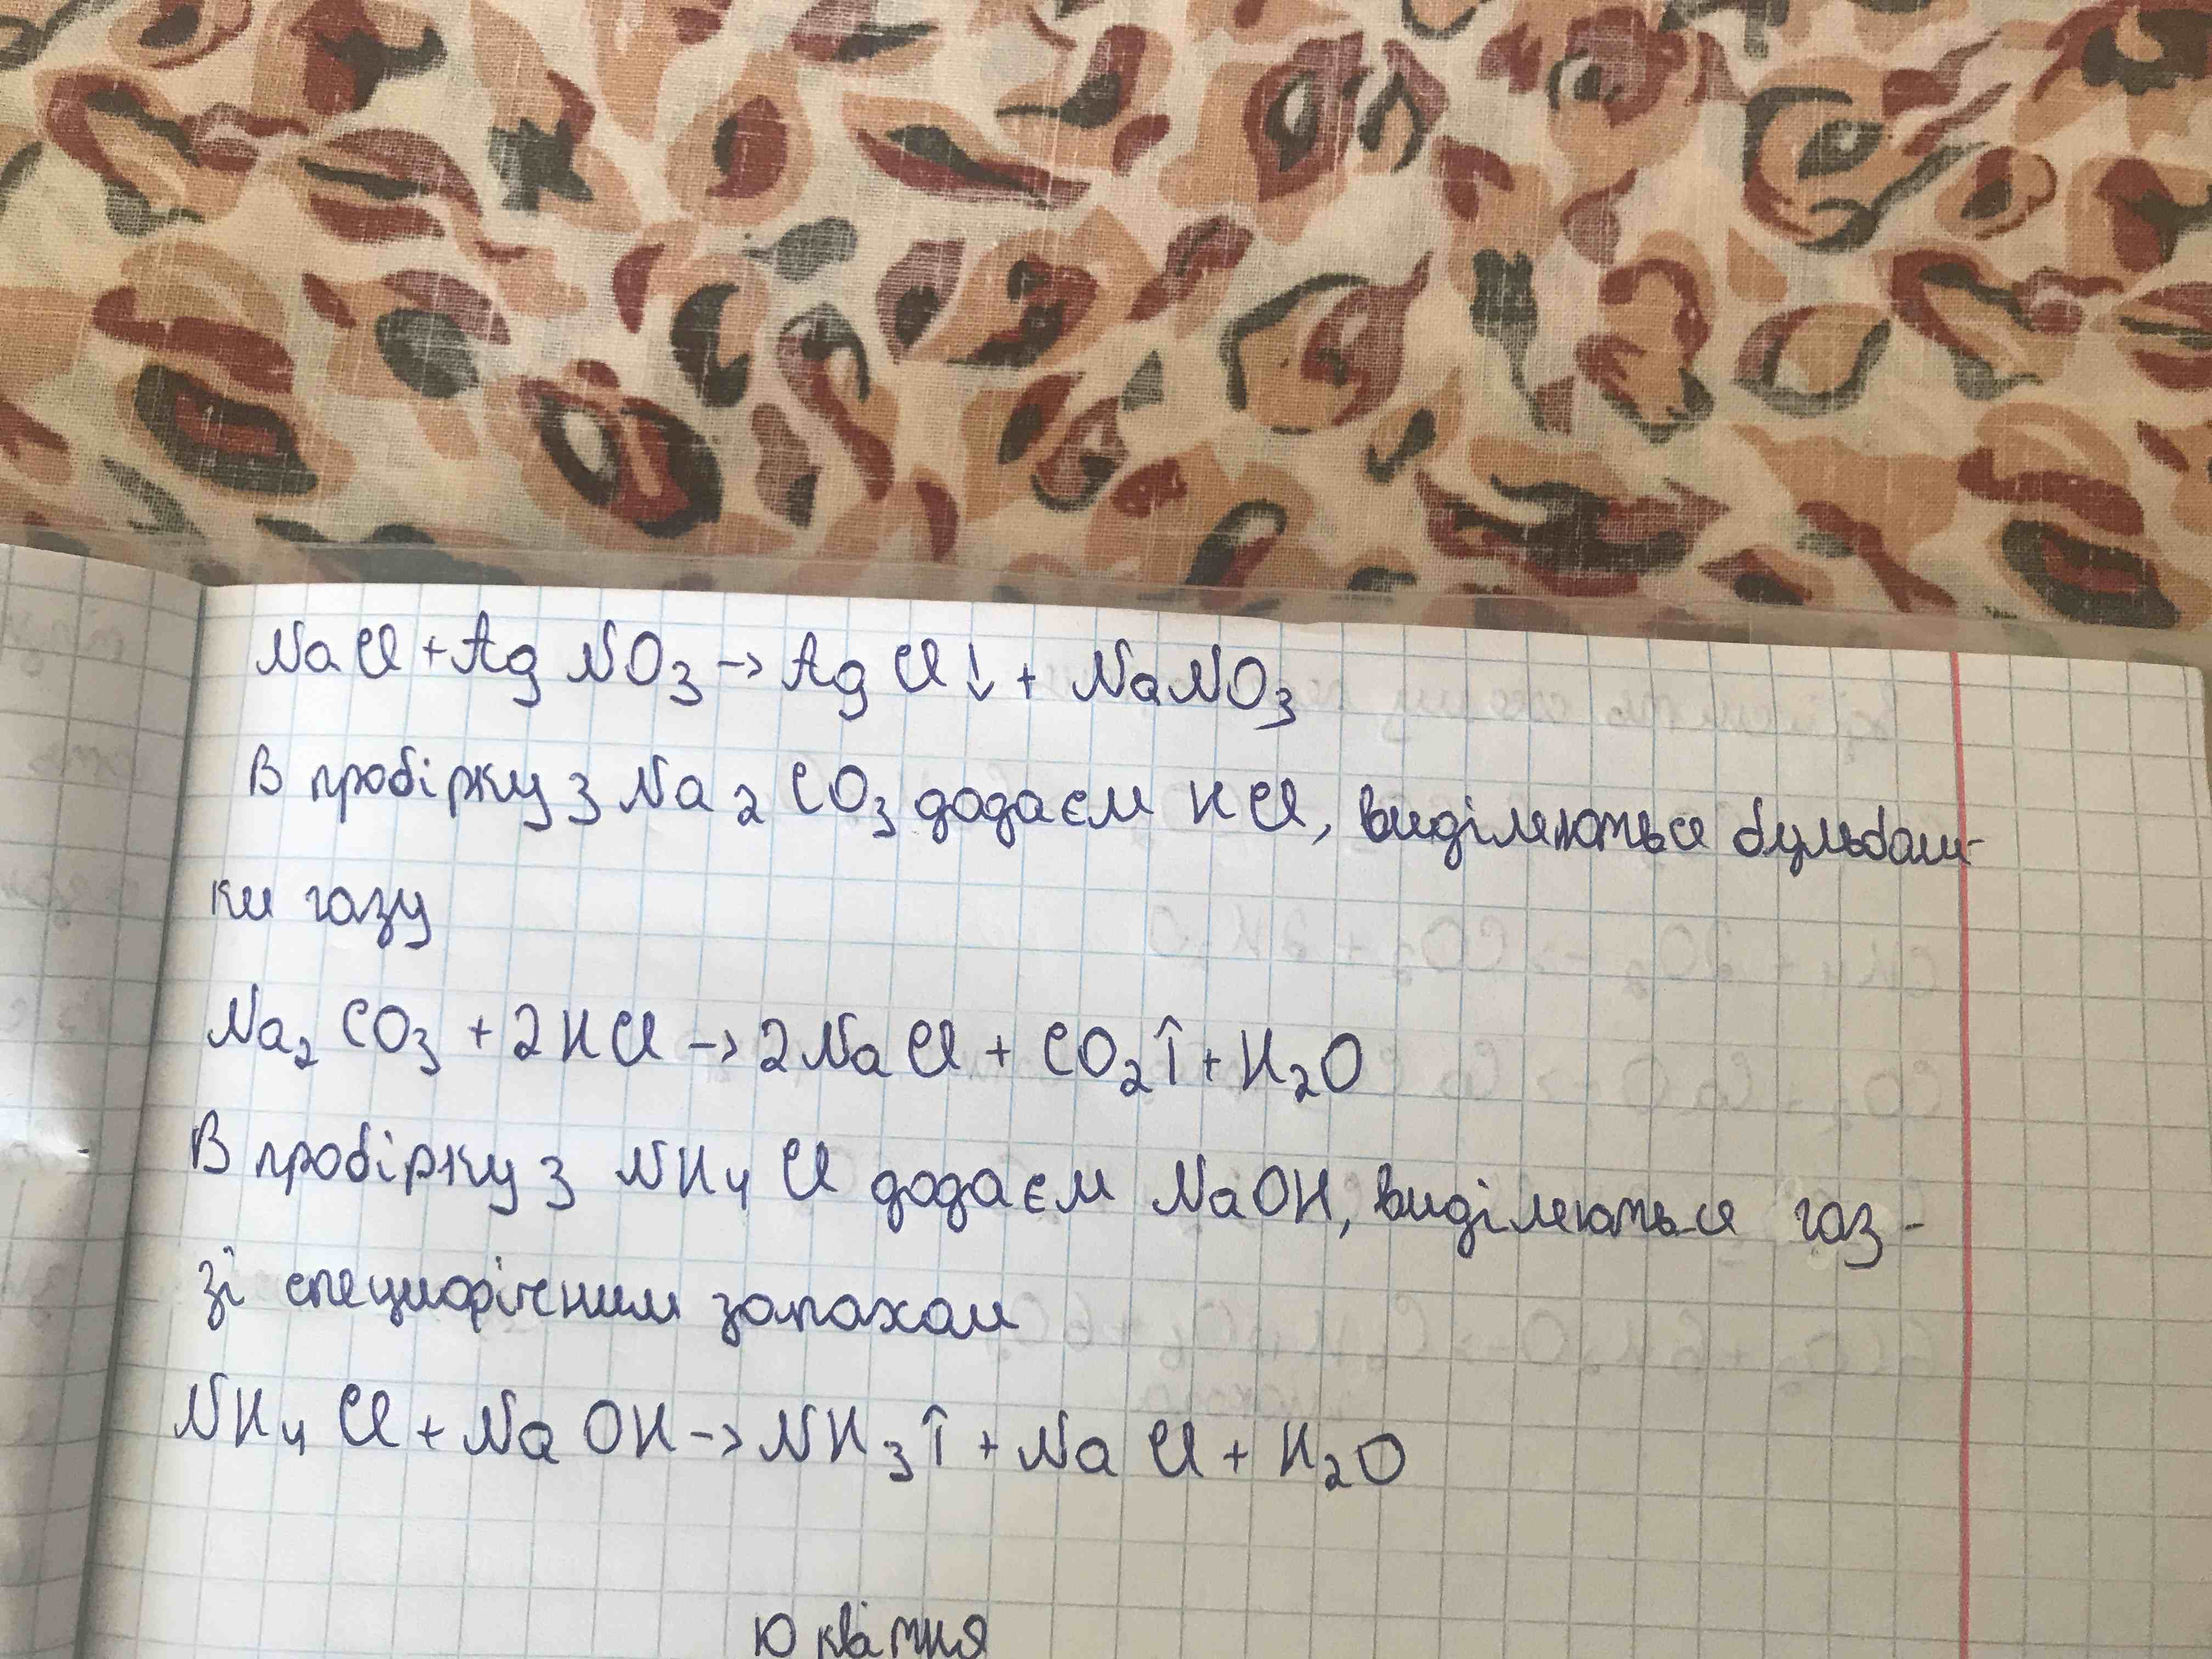 NaCl + AgNO₃ → AgCl↓ + NaNO₃
В пробірку з Na₂CO₃ додаєм HCl, виділяються бульбаш-
ки газу
Na₂CO₃ + 2HCl → 2NaCl + CO₂↑ + H₂O
В пробірку з NH₄Cl додаєм NaOH, виділяються газ-
зі специфічним запахом
NH₄Cl + NaOH → NH₃↑ + NaCl + H₂O
10 квітня